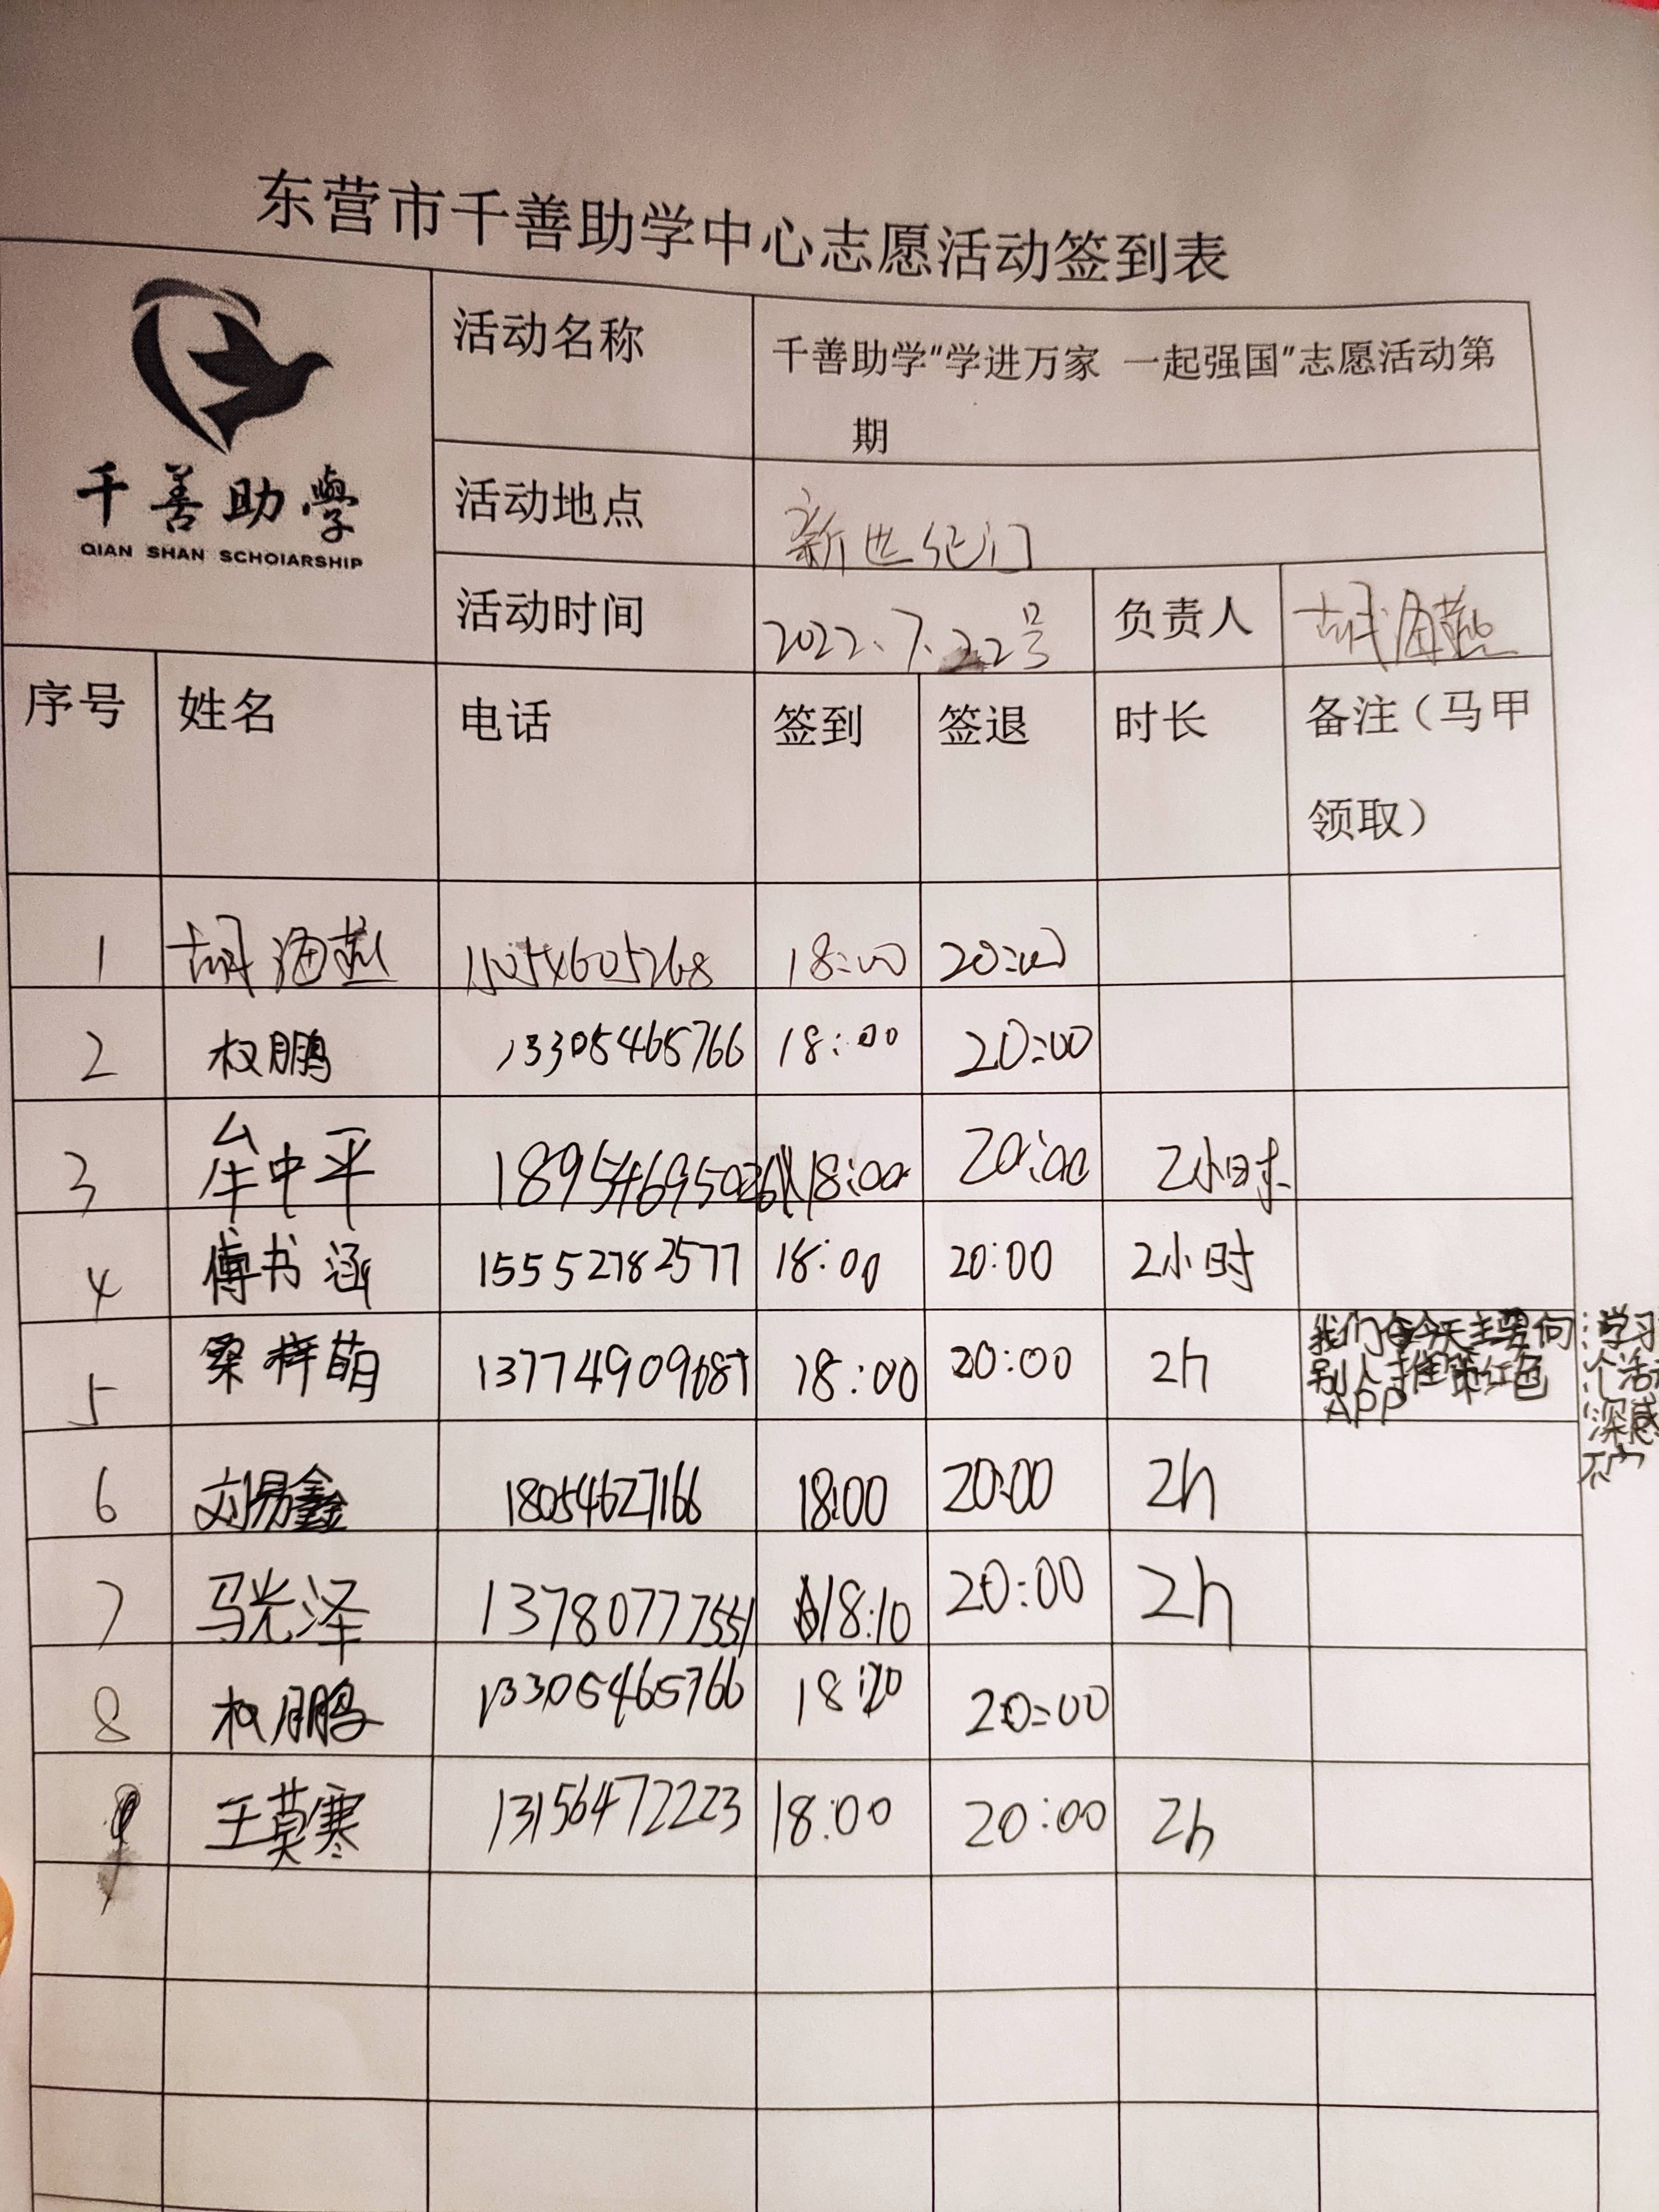 东营市千善助学中心志愿活动签到表
千善助学
QIAN SHAN SCHOIARSHIP
活动名称 千善助学"学进万家 一起强国"志愿活动第
期
活动地点 新世纪门
活动时间 2022.7.22号 负责人 胡海燕
序号 姓名 电话 签到 签退 时长 备注（马甲
领取）
1 胡海燕 18:00 20:00
2 权鹏 13305465766 18:00 20:00
3 牟中平 18:00 20:00 2小时
4 傅书涵 15552782577 18:00 20:00 2小时
5 桑梓萌 18:00 20:00 2h
我们今天主要向
别人推荐红色
APP
学习
个活
深感
6 刘易鑫 18054627166 18:00 20:00 2h
7 马光泽 13780777551 18:10 20:00 2h
8 权鹏 13305465766 18:20 20:00
9 王莫寒 13156472223 18:00 20:00 2h